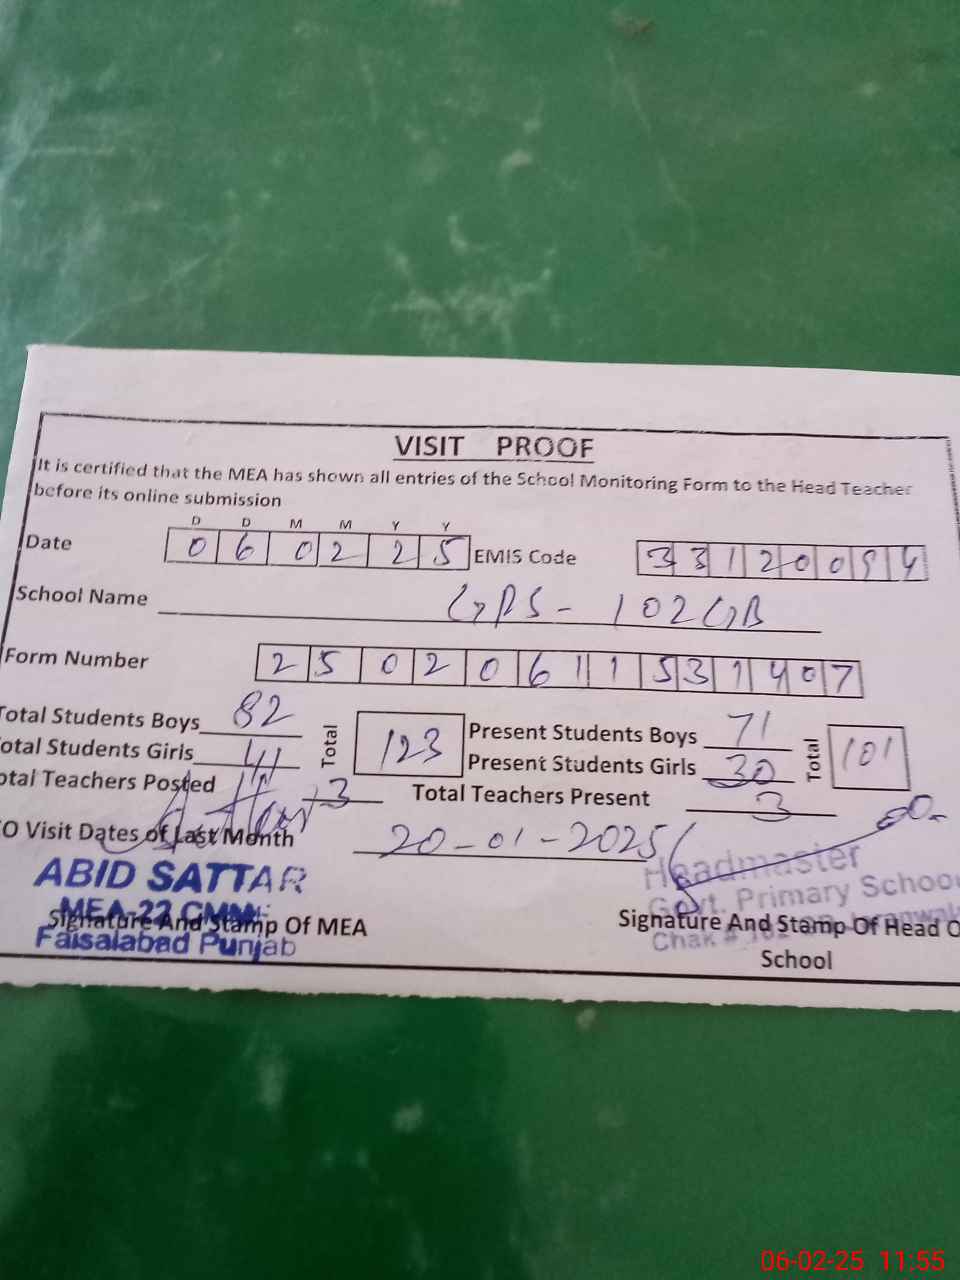 VISIT PROOF
It is certified that the MEA has shown all entries of the School Monitoring Form to the Head Teacher
before its online submission
D D M M Y Y
Date 0 6 0 2 2 5 EMIS Code 3 3 1 2 0 0 9 4
School Name GPS - 102 GB
Form Number 2 5 0 2 0 6 1 1 5 3 1 4 0 7
Total Students Boys 82 Total 123 Present Students Boys 71 Total 101
otal Students Girls 41 Present Students Girls 30
otal Teachers Posted 3 Total Teachers Present 3
O Visit Dates of Last Month 20-01-2025
ABID SATTAR
MEA-22 CMM
Faisalabad Punjab
Signature And Stamp Of MEA
Headmaster
Govt. Primary Schoo
Chak #
Signature And Stamp Of Head O
School
06-02-25 11:55